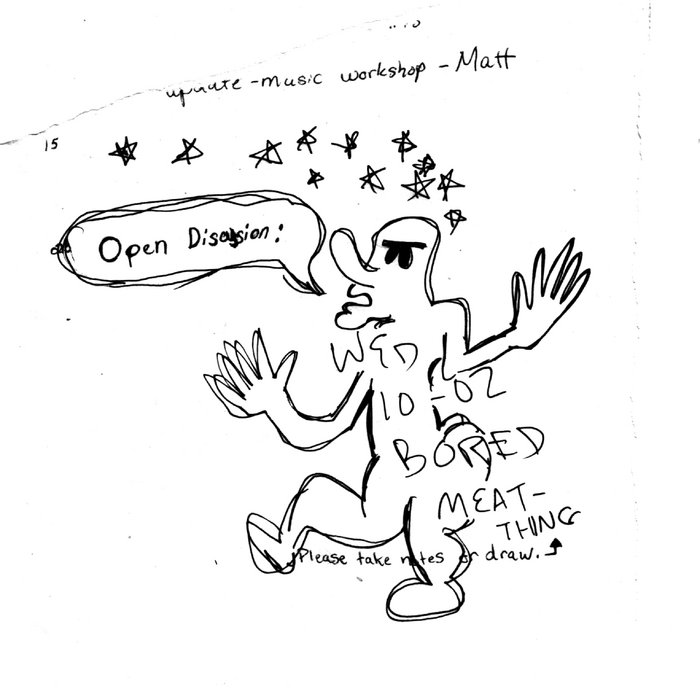 update - music workshop - Matt
15
Open Discussion:
WED
10-02
BORED
MEAT-
THING
Please take notes or draw.